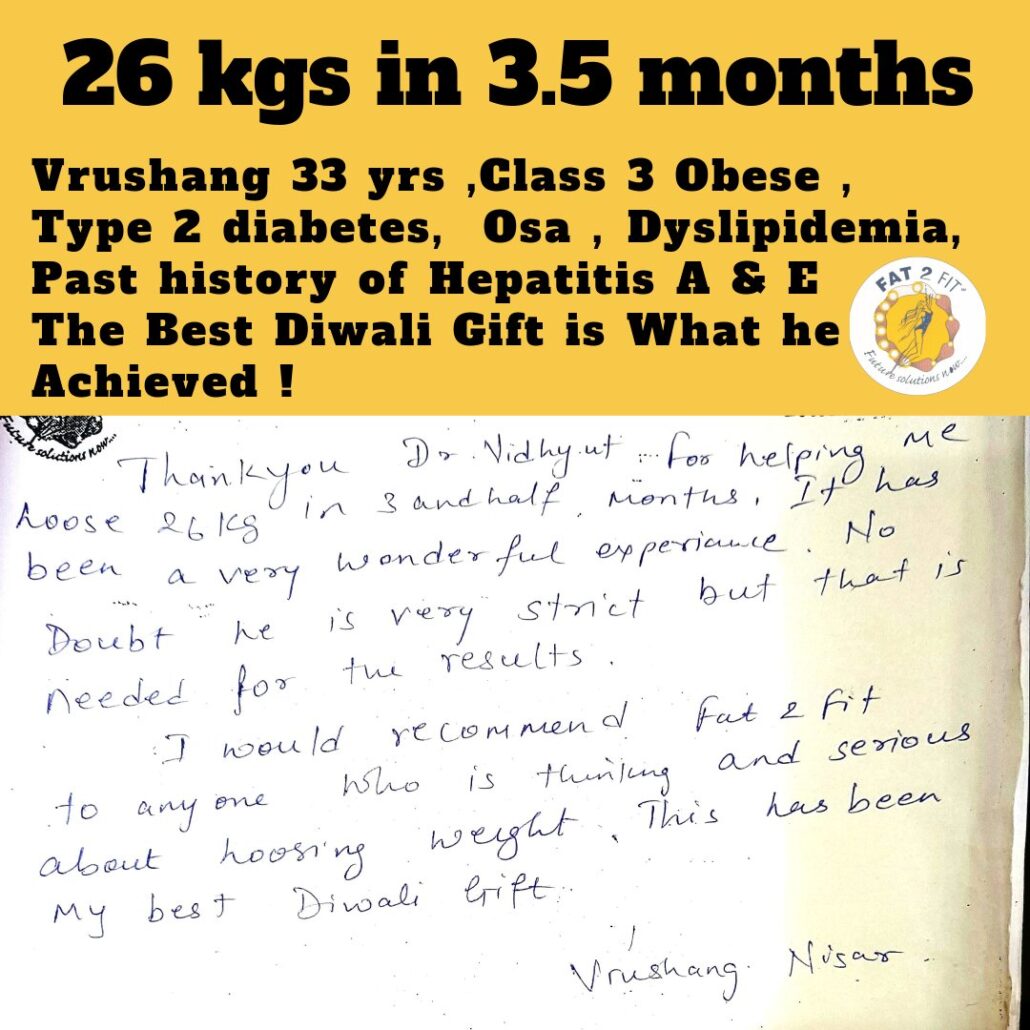 26 kgs in 3.5 months
Vrushang 33 yrs ,Class 3 Obese ,
Type 2 diabetes, Osa , Dyslipidemia,
Past history of Hepatitis A & E
The Best Diwali Gift is What he
Achieved !
FAT 2 FIT
Future solutions now...
Future solutions now...
Thankyou Dr. Vidhyut for helping me
Loose 26 kg in 3 and half months. It has
been a very wonderful experiance. No
Doubt he is very strict but that is
needed for the results.
I would recommend Fat 2 Fit
to anyone who is thinking and serious
about Loosing weight. This has been
My best Diwali Gift.
Vrushang Nisar.